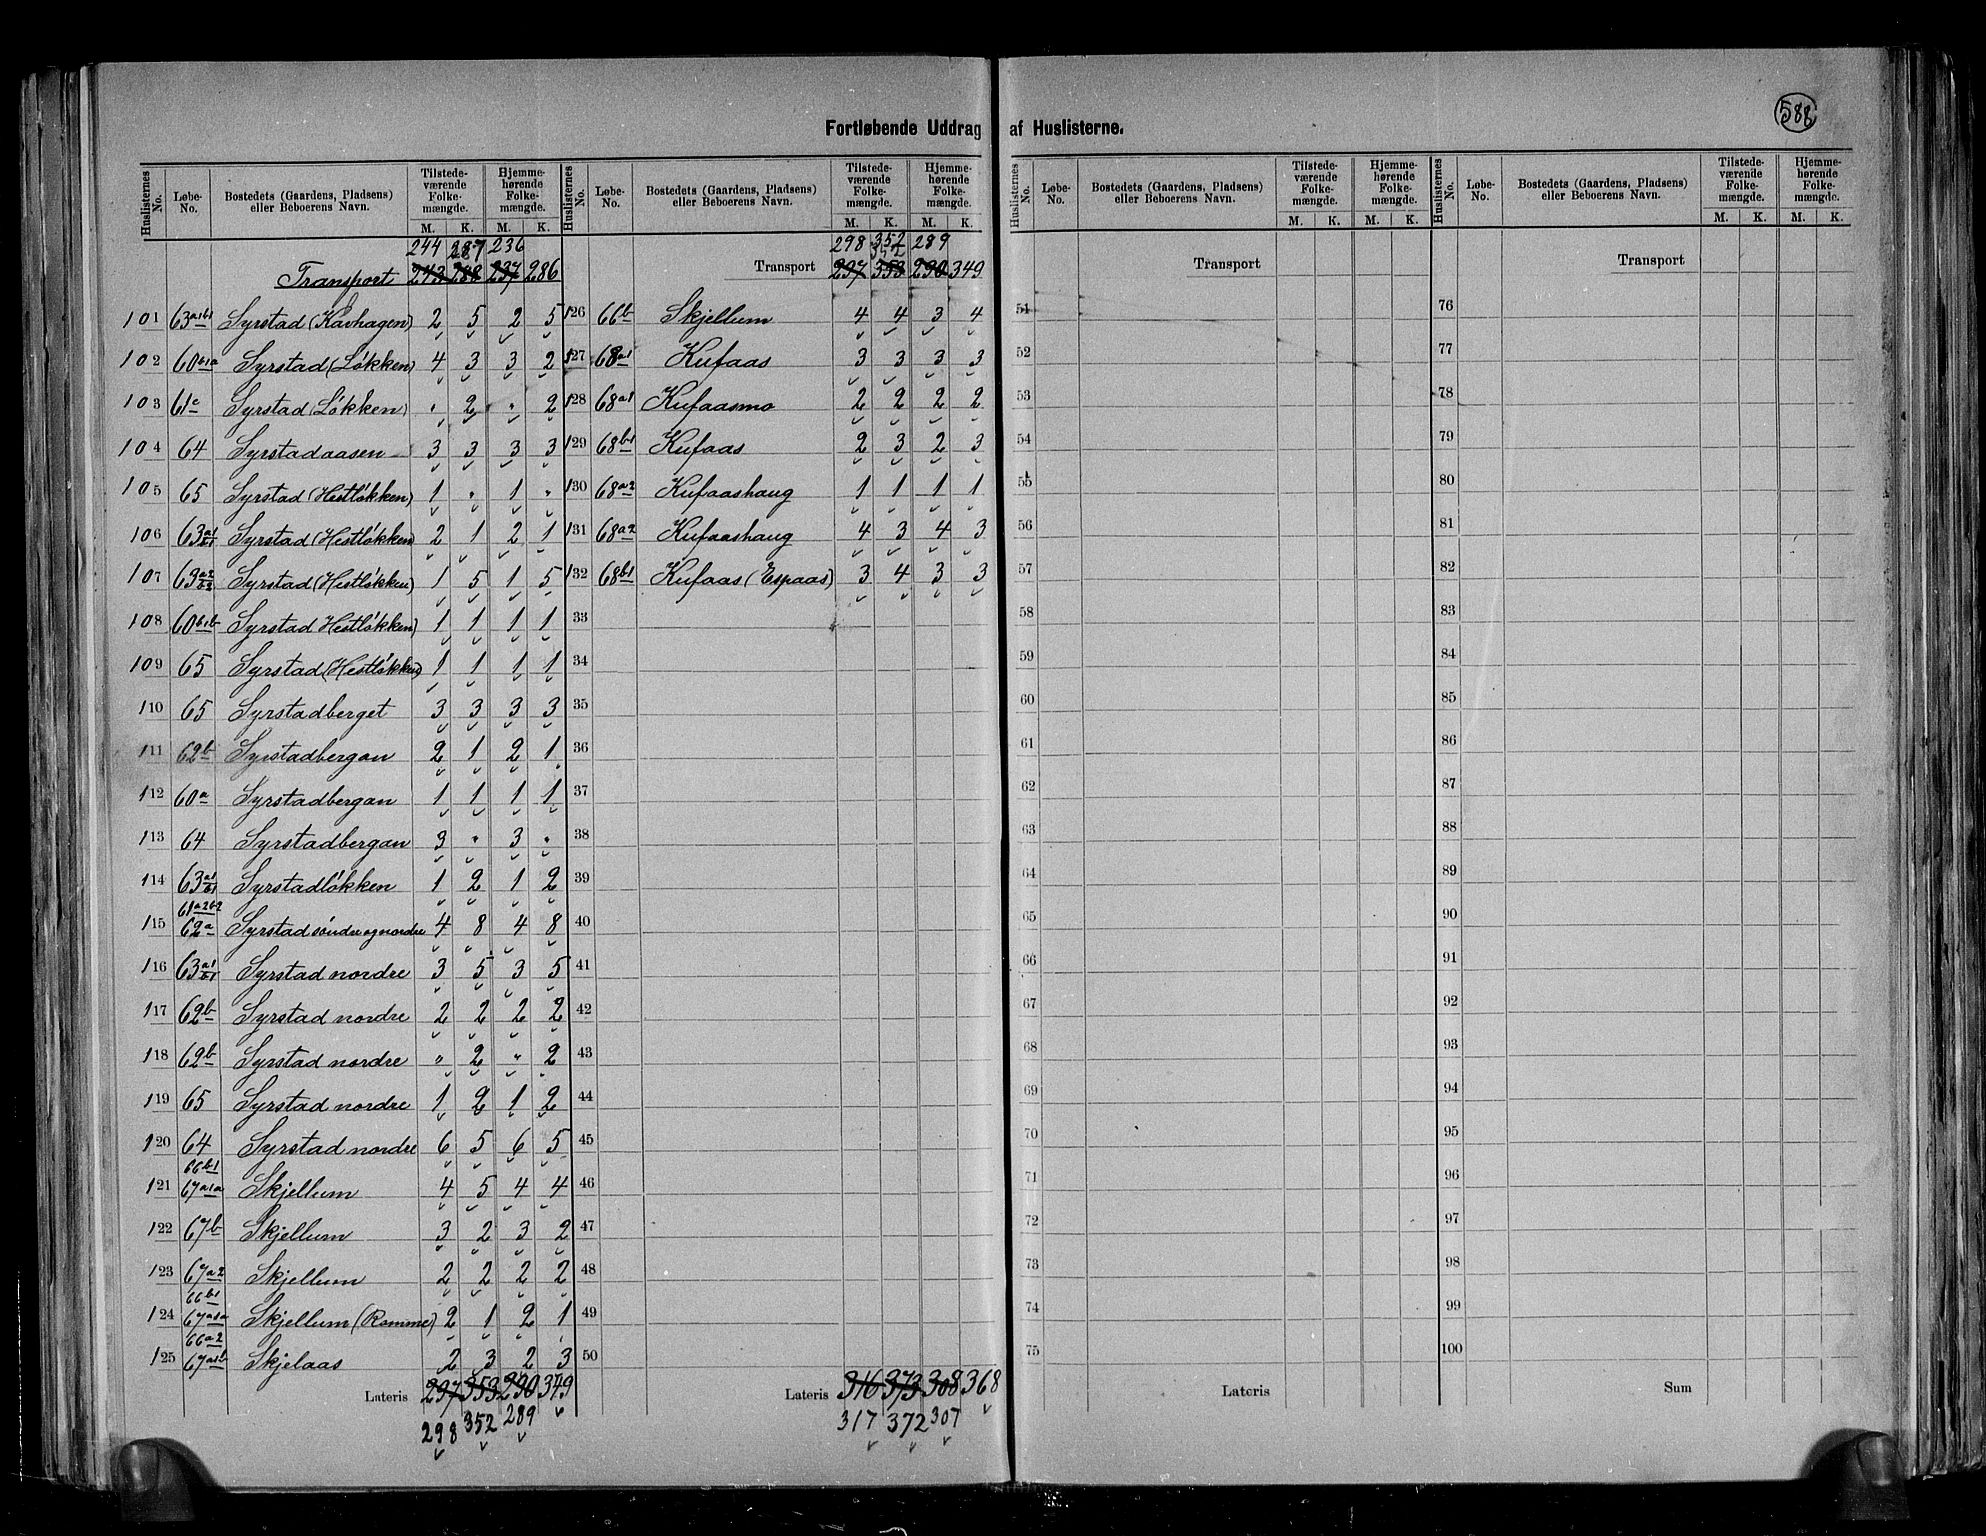 588
Fortløbende Uddrag af Huslisterne.
Huslisternes No. | Løbe-No. | Bostedets (Gaardens, Pladsens) eller Beboerens Navn. | Tilstedeværende Folkemængde. M. K. | Hjemmehørende Folkemængde. M. K.
244 287 236
Transport 243 288 237 286
101 63a1b1 Syrstad (Kavhagen) 2 5 2 5
102 60b1a Syrstad (Løkken) 4 3 3 2
103 61c Syrstad (Løkken) " 2 " 2
104 64 Syrstadaasen 3 3 3 3
105 65 Syrstad (Hestløkken) 1 " 1 "
106 63a1/b1 Syrstad (Hestløkken) 2 1 2 1
107 63a2/b2 Syrstad (Hestløkken) 1 5 1 5
108 60b1b Syrstad Hestløkken) 1 1 1 1
109 65 Syrstad (Hestløkken) 1 1 1 1
110 65 Syrstadberget 3 3 3 3
111 62b Syrstadbergan 2 1 2 1
112 60a Syrstadbergan 1 1 1 1
113 64 Syrstadbergan 3 " 3 "
114 63a1/b1 Syrstadløkken 1 2 1 2
61a2b2
115 62a Syrstad søndre og nordre 4 8 4 8
116 63a1/b1 Syrstad nordre 3 5 3 5
117 62b Syrstad nordre 2 2 2 2
118 62b Syrstad nordre " 2 " 2
119 65 Syrstad nordre 1 2 1 2
120 64 Syrstad nordre 6 5 6 5
66b1
121 67a1a Skjellum 4 5 4 4
122 67b Skjellum 3 2 3 2
123 67a2 Skjellum 2 2 2 2
66b1
124 67a1a Skjellum (Romme) 2 1 2 1
66a2
125 67a1b Skjelaas 2 3 2 3
Lateris 297 353 290 349
298 352 289
Huslisternes No. | Løbe-No. | Bostedets (Gaardens, Pladsens) eller Beboerens Navn. | Tilstedeværende Folkemængde. M. K. | Hjemmehørende Folkemængde. M. K.
298 352 289
Transport 297 353 290 349
126 66b Skjellum 4 4 3 4
127 68a1 Kufaas 3 3 3 3
128 68a1 Kufaasmo 2 2 2 2
129 68b1 Kufaas 2 3 2 3
130 68a2 Kufaashaug 1 1 1 1
131 68a2 Kufaashaug 4 3 4 3
132 68b1 Kufaas (Espaas) 3 4 3 3
33
34
35
36
37
38
39
40
41
42
43
44
45
46
47
48
49
50
Lateris 316 373 308 368
317 372 307
Huslisternes No. | Løbe-No. | Bostedets (Gaardens, Pladsens) eller Beboerens Navn. | Tilstedeværende Folkemængde. M. K. | Hjemmehørende Folkemængde. M. K.
Transport
51
52
53
54
55
56
57
58
59
60
61
62
63
64
65
66
67
68
69
70
71
72
73
74
75
Lateris
Huslisternes No. | Løbe-No. | Bostedets (Gaardens, Pladsens) eller Beboerens Navn. | Tilstedeværende Folkemængde. M. K. | Hjemmehørende Folkemængde. M. K.
Transport
76
77
78
79
80
81
82
83
84
85
86
87
88
89
90
91
92
93
94
95
96
97
98
99
100
Sum